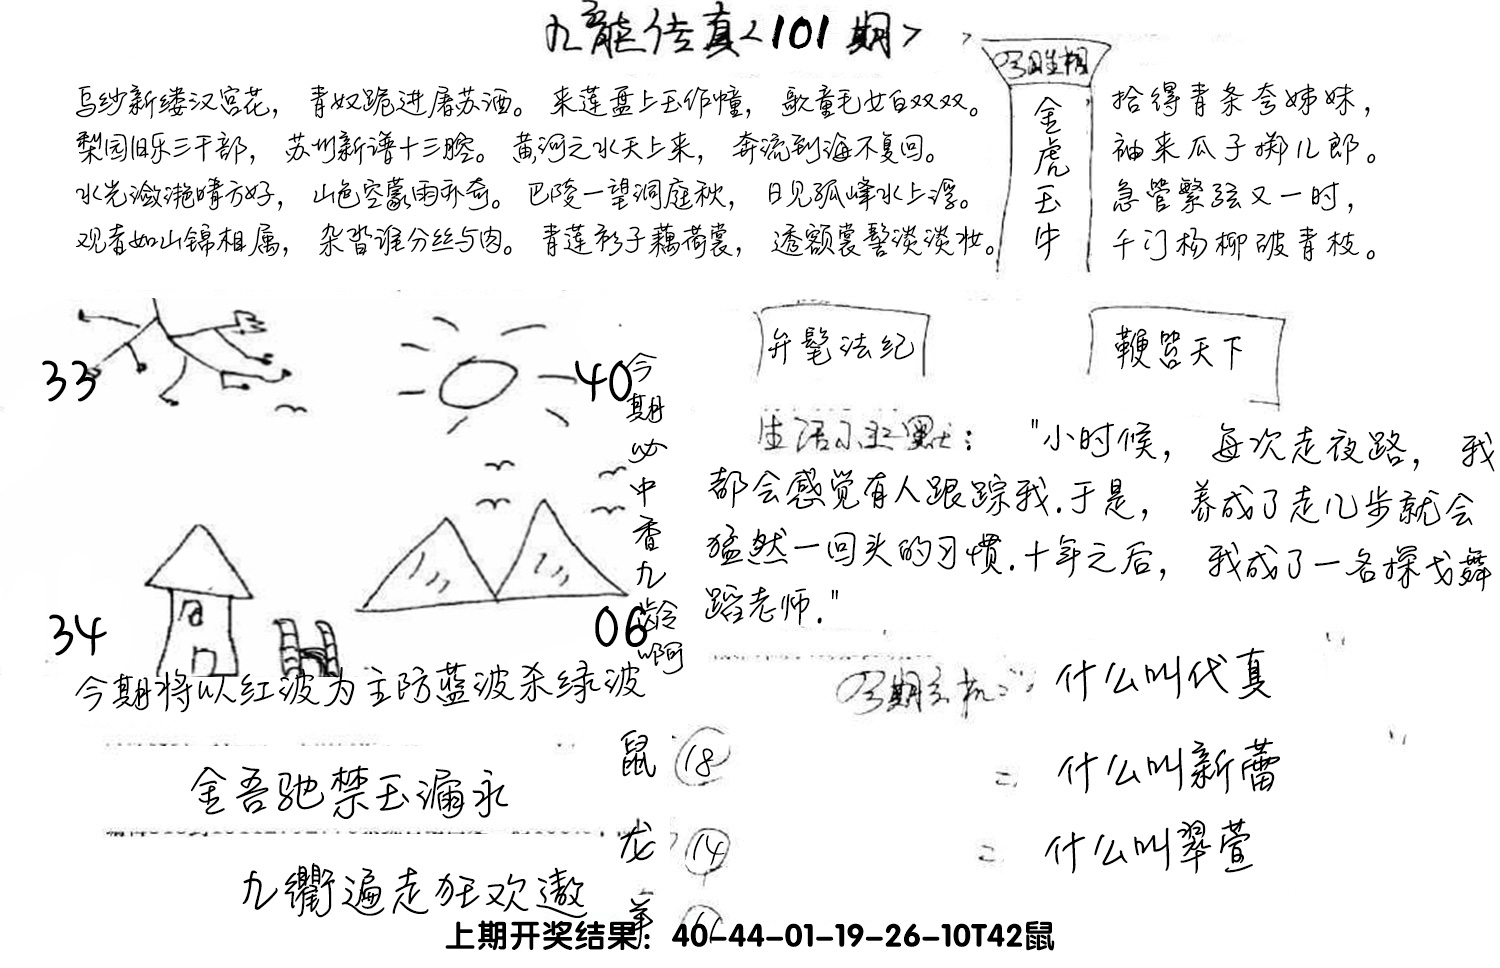 九龙传真<101期>
乌纱新缕汉宫花，青奴跪进屠苏酒。来莲盘上玉作幢，歌童毛女白双双。
梨园旧乐三千部，苏州新谱十三腔。黄河之水天上来，奔流到海不复回。
水光潋滟晴方好，山色空蒙雨亦奇。巴陵一望洞庭秋，日见孤峰水上浮。
观者如山锦相属，杂沓谁分丝与肉。青莲衫子藕荷裳，透额裳髻淡淡妆。
金虎玉牛
拾得青条夸姊妹，
袖来瓜子掷儿郎。
急管繁弦又一时，
千门杨柳破青枝。
33
40
34
06
今期必中香九龄啊
今期将以红波为主防蓝波杀绿波
弁髦法纪
鞭笞天下
生活小幽默："小时候，每次走夜路，我
都会感觉有人跟踪我.于是，养成了走几步就会
猛然一回头的习惯.十年之后，我成了一名探戈舞
蹈老师."
今期玄机 什么叫代真
= 什么叫新蕾
= 什么叫翠萱
金吾驰禁玉漏永
九衢遍走狂欢遨
鼠 18
龙 14
羊
上期开奖结果：40-44-01-19-26-10T42鼠